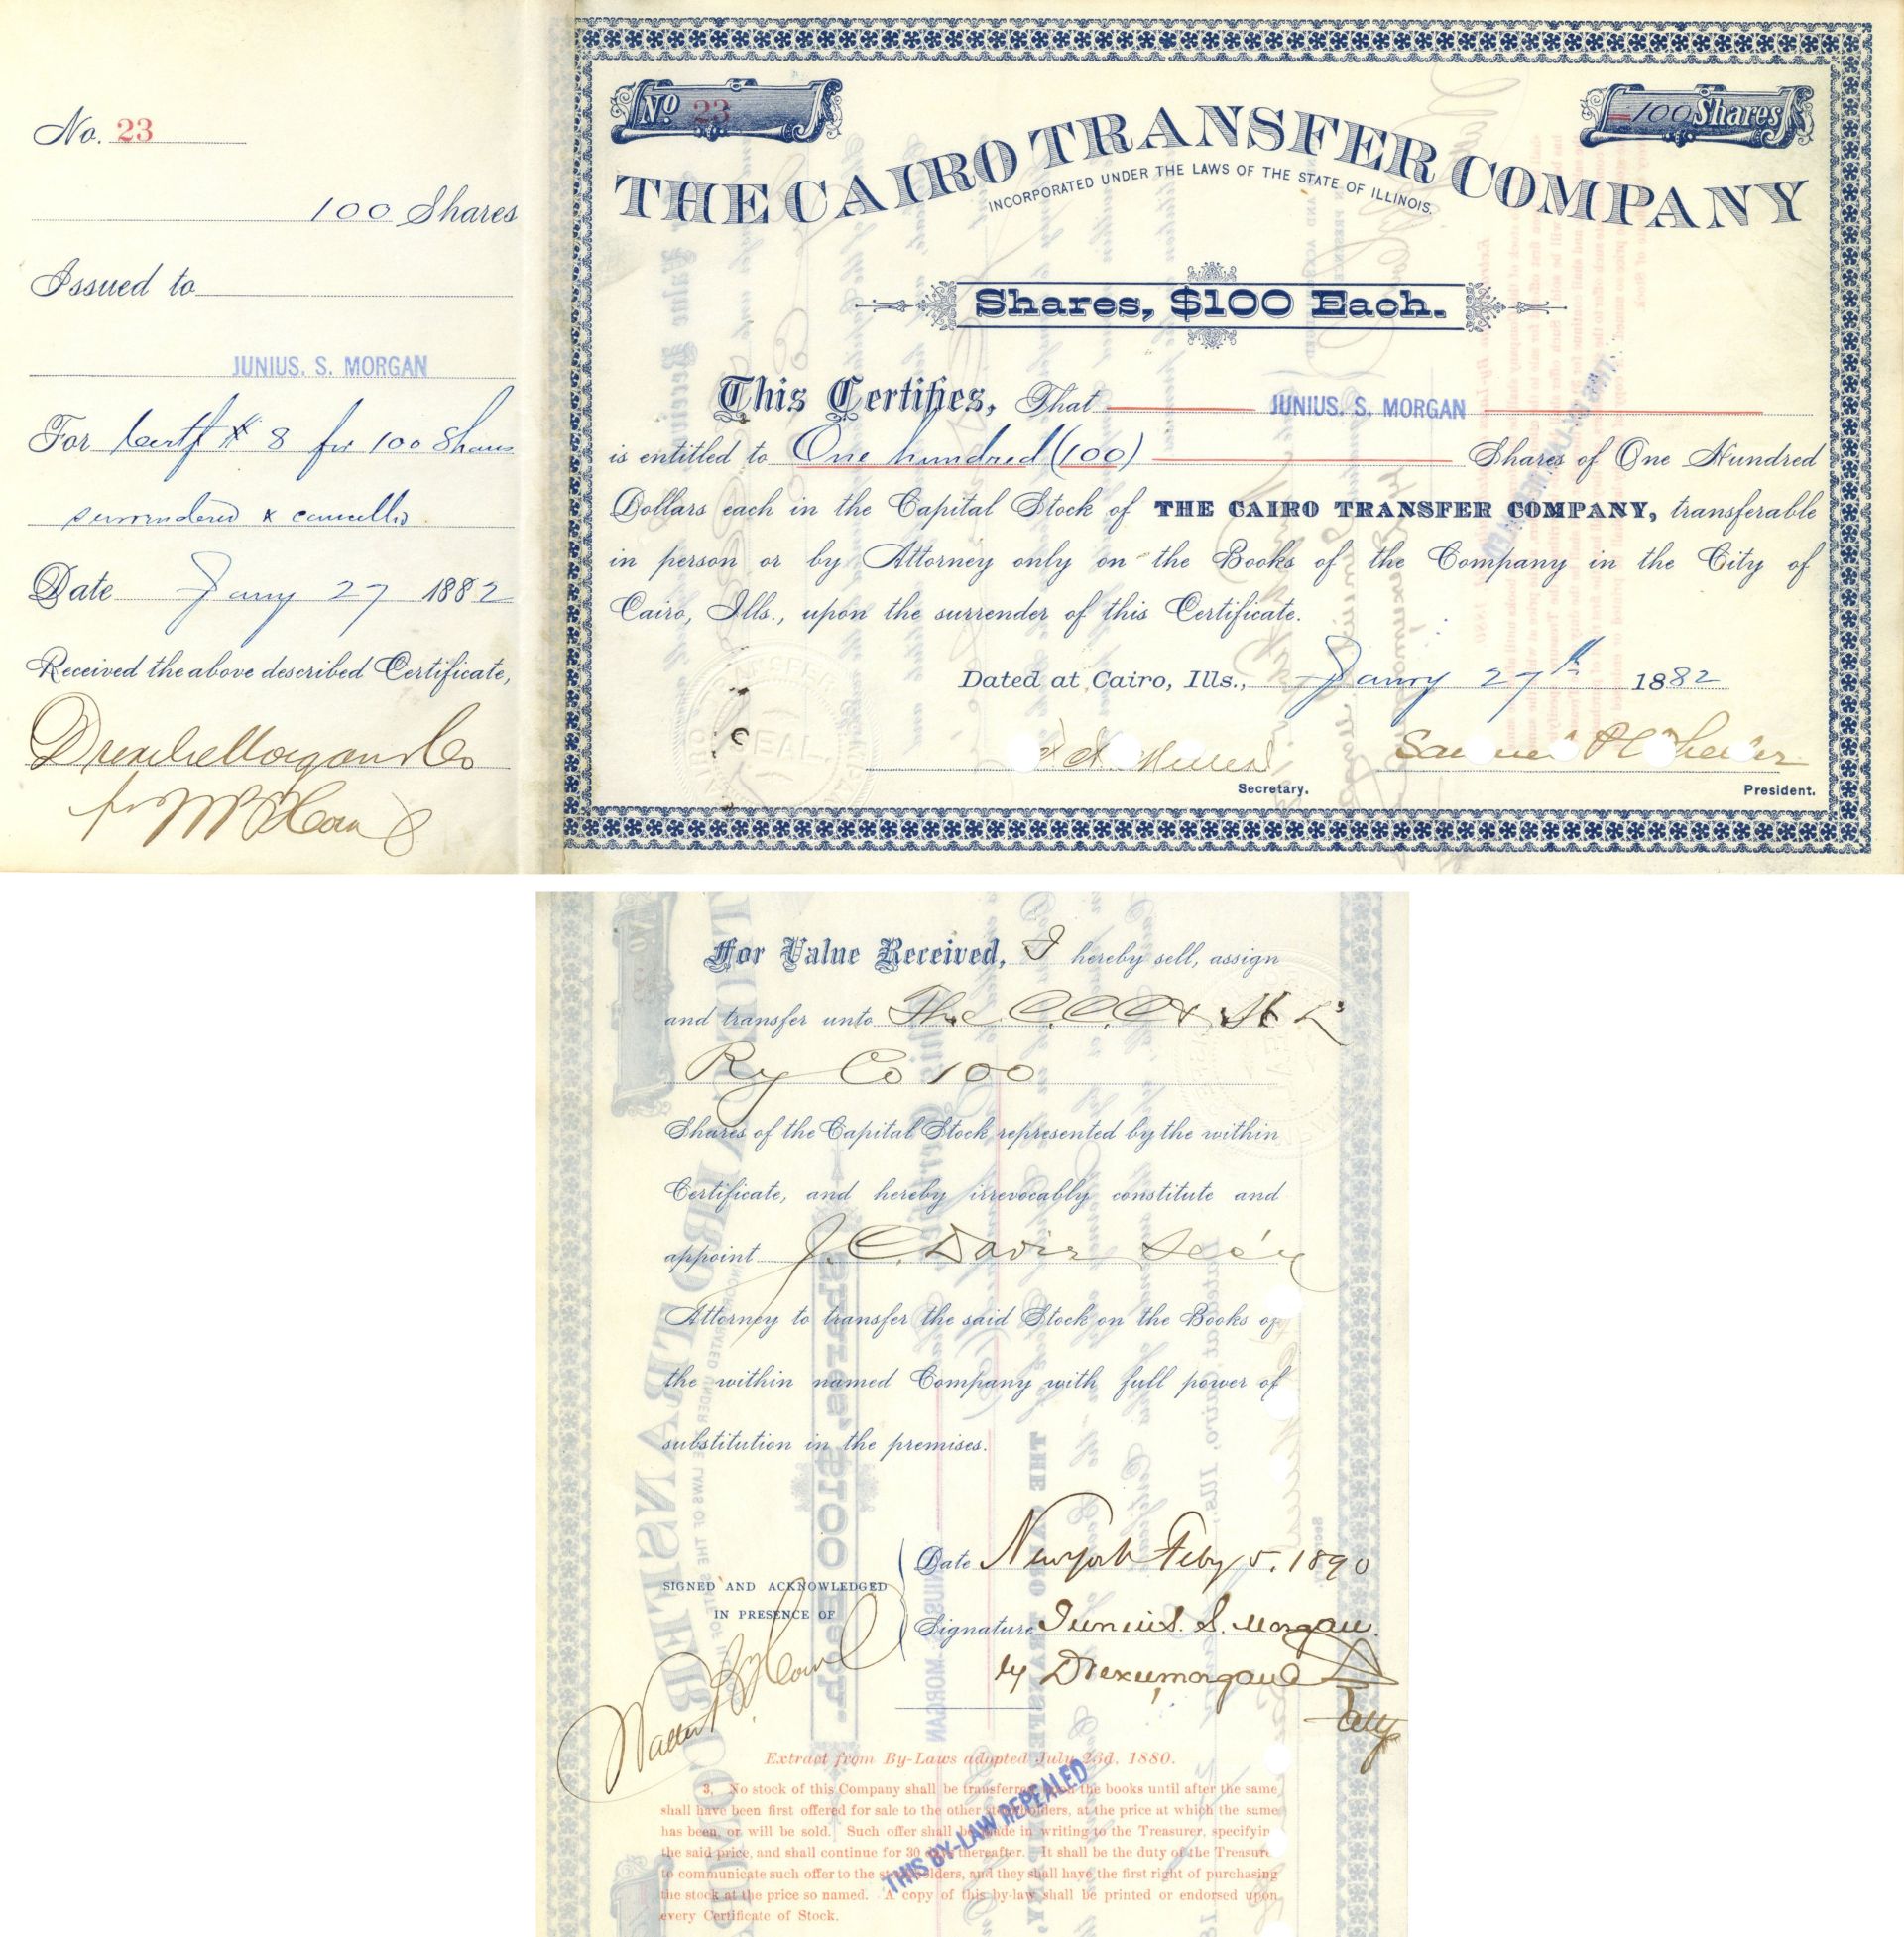 No. 23
100 Shares
Issued to
JUNIUS. S. MORGAN
For Certf # 8 for 100 Shares
surrendered & cancelled
Date Jany 27 1882
Received the above described Certificate,
Drexel Morgan & Co
for
No 23
100 Shares
THE CAIRO TRANSFER COMPANY
INCORPORATED UNDER THE LAWS OF THE STATE OF ILLINOIS.
Shares, $100 Each.
This Certifies, That JUNIUS. S. MORGAN
is entitled to One hundred (100) Shares of One Hundred
Dollars each in the Capital Stock of THE CAIRO TRANSFER COMPANY, transferable
in person or by Attorney only on the Books of the Company in the City of
Cairo, Ills., upon the surrender of this Certificate.
Dated at Cairo, Ills., Jany 27th 1882
SEAL
Secretary.
President.
For Value Received, I hereby sell, assign
and transfer unto The C.C.C & St L
Ry Co 100
Shares of the Capital Stock represented by the within
Certificate, and hereby irrevocably constitute and
appoint J. C. Davis Secy
Attorney to transfer the said Stock on the Books of
the within named Company with full power of
substitution in the premises.
Date New York Feby 5. 1890
SIGNED AND ACKNOWLEDGED
IN PRESENCE OF
Signature Junius. S. Morgan.
by Drexel Morgan & Co
Atty
Walter
Extract from By-Laws adopted July 23d, 1880.
3, No stock of this Company shall be transferred upon the books until after the same
shall have been first offered for sale to the other stockholders, at the price at which the same
has been, or will be sold. Such offer shall be made in writing to the Treasurer, specifyin
the said price, and shall continue for 30 days thereafter. It shall be the duty of the Treasure
to communicate such offer to the stockholders, and they shall have the first right of purchasing
the stock at the price so named. A copy of this by-law shall be printed or endorsed upon
every Certificate of Stock.
THIS BY-LAW REPEALED